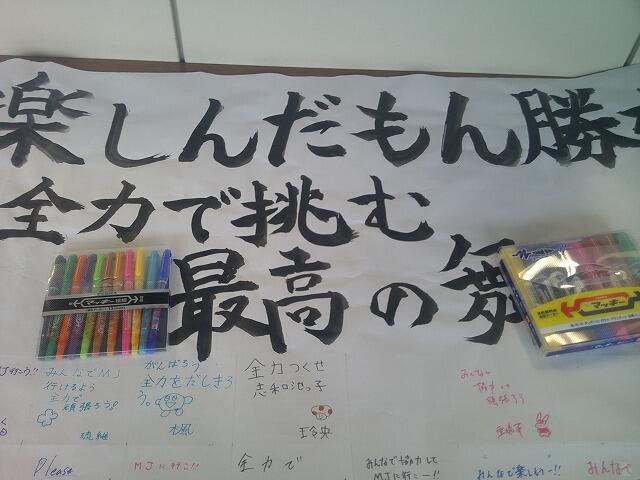 楽しんだもん勝ち
全力で挑む
最高の舞
マッキー
マッキー
みんなでMJ
行けるよう
全力で
頑張ろう!
がんばろう
全力をだしきろ
う。
全力つくせ
志和池っ子
玲央
みんな
頑張ろう
Please
MJに行こ!!
全力で
みんなで協力して
MJに行こー!!
みんなで楽しもー!!
みんなで